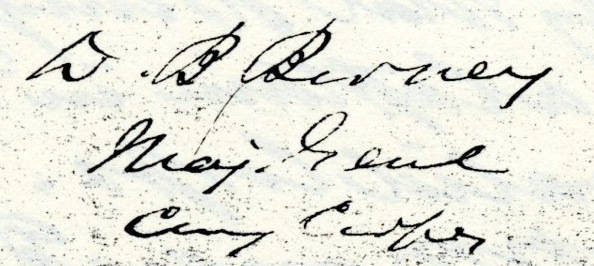 D. B Birney
Maj. Genl
Comg Corps.